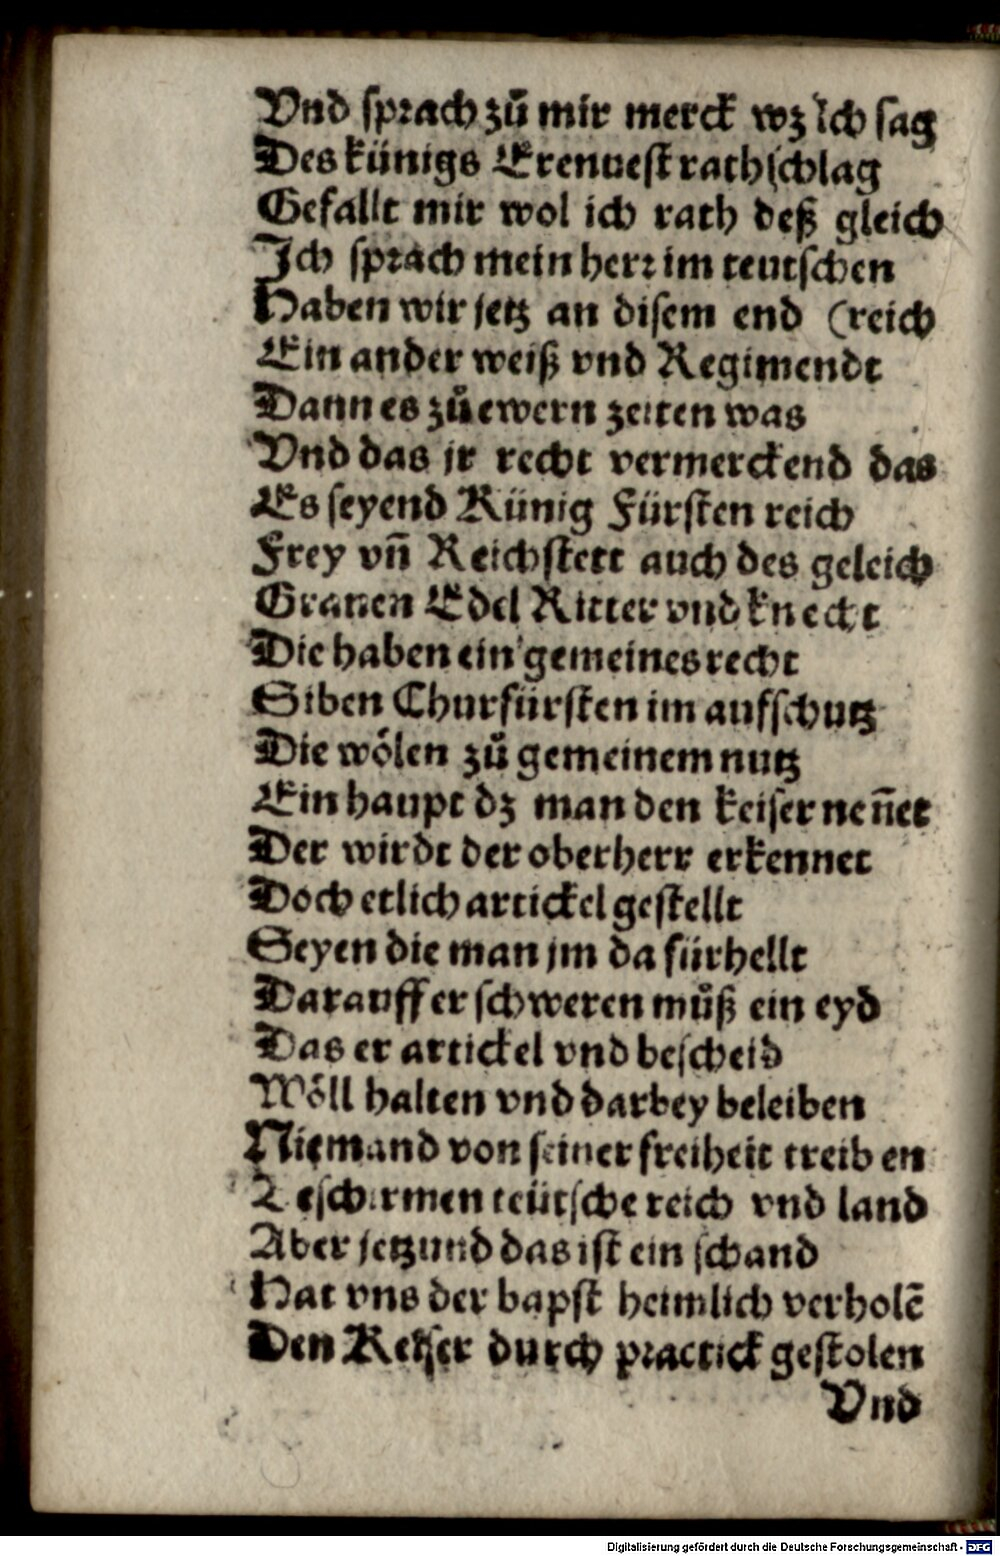 Vnd sprach zů mir merck wz ich sag
Des künigs Erenuest rathschlag
Gefallt mir wol ich rath deß gleich
Ich sprach mein herr im teutschen
Haben wir jetz an disem end (reich
Ein ander weiß vnd Regimendt
Dann es zů ewern zeiten was
Vnd das jr recht vermerckend das
Es seyend Künig Fürsten reich
Frey vn̄ Reichstett auch des geleich
Grauen Edel Ritter vnd knecht
Die haben ein gemeines recht
Siben Churfürsten im aufschutz
Die wölen zů gemeinem nutz
Ein haupt dz man den keiser nen̄et
Der wirdt der oberherr erkennet
Doch etlich artickel gestellt
Seyen die man jm da fürhellt
Darauff er schweren můß ein eyd
Das er artickel vnd bescheid
Wöll halten vnd darbey beleiben
Niemand von seiner freiheit treiben
Beschirmen teütsche reich vnd land
Aber jetzund das ist ein schand
Hat vns der bapst heimlich verholē
Den Keiser durch practick gestolen
Vnd
Digitalisierung gefördert durch die Deutsche Forschungsgemeinschaft - DFG